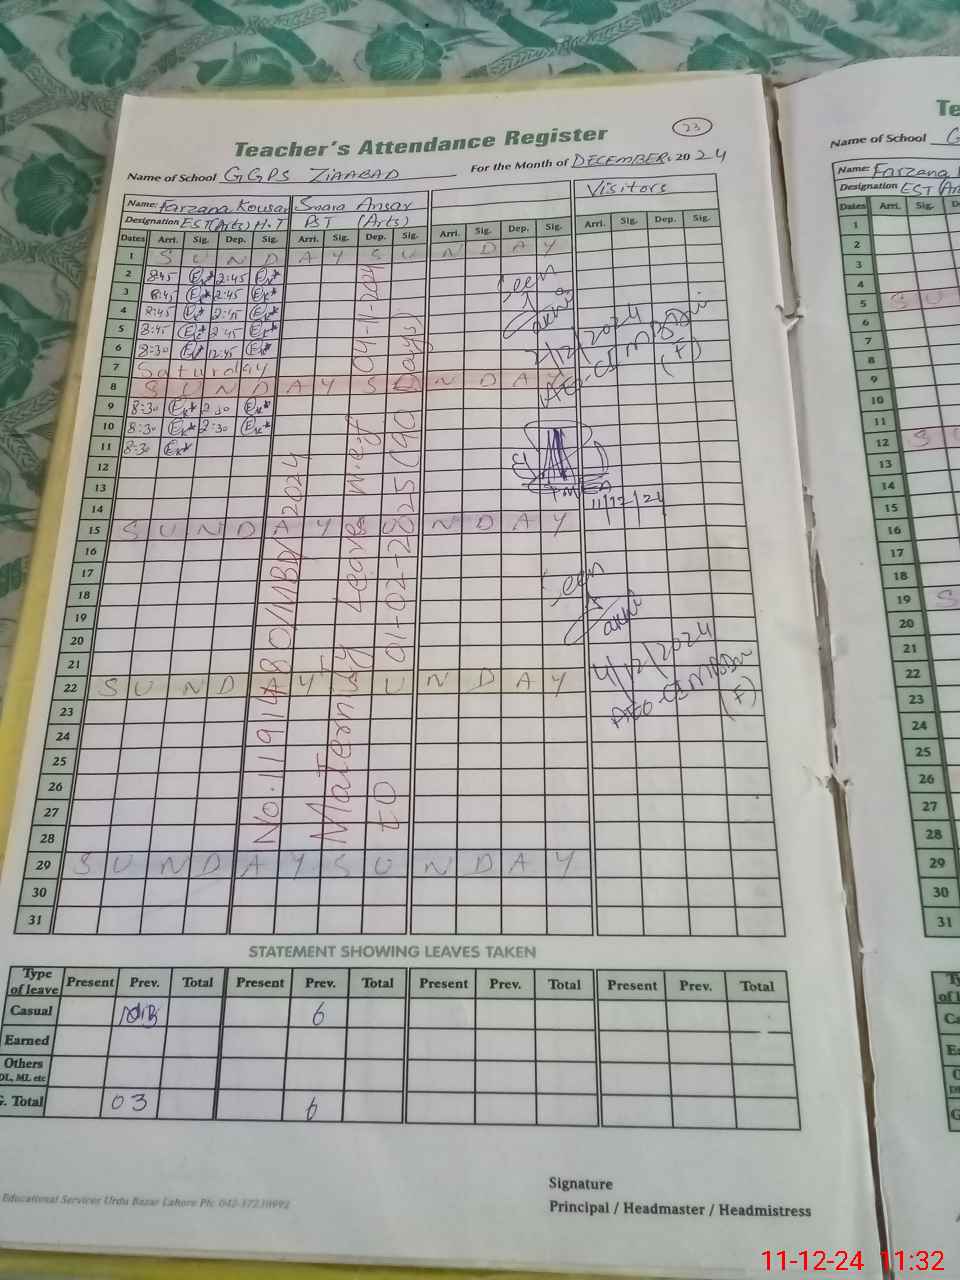 23
Teacher's Attendance Register
Name of School GGPS ZIAABAD For the Month of DECEMBER. 2024
Name: Farzana Kousar Smaia Ansar Visitors
Designation EST(Arts) H.T PST (Arts)
Dates Arri. Sig. Dep. Sig. Arri. Sig. Dep. Sig. Arri. Sig. Dep. Sig. Arri. Sig. Dep. Sig.
1 S U N D A Y S U N D A Y
2 8:45 2:45
3 8:45 2:45
4 8:45 2:45
5 8:45 2:45
6 8:30 12:45
7 Saturday
8 S U N D A Y S U N D A Y
9 8:30 2:30
10 8:30 2:30
11 8:30
12
13
14
15 S U N D A Y S U N D A Y
16
17
18
19
20
21
22 S U N D A Y S U N D A Y
23
24
25
26
27
28
29 S U N D A Y S U N D A Y
30
31
Maternity Leave w.e.f 04-11-2024
to 01-02-2025 (90 Days)
Seen
2/12/2024
(F)
11/12/24
Seen
4/12/2024
(F)
STATEMENT SHOWING LEAVES TAKEN
Type of leave Present Prev. Total Present Prev. Total Present Prev. Total Present Prev. Total
Casual 6
Earned
Others
DL, ML etc
G. Total 03 6
Signature
Principal / Headmaster / Headmistress
Educational Services Urdu Bazar Lahore Ph:
Name of School
Name: Farzana
Designation EST
Dates Arri. Sig.
1
2
3
4
5
6
7
8
9
10
11
12
13
14
15
16
17
18
19
20
21
22
23
24
25
26
27
28
29
30
31
11-12-24 11:32